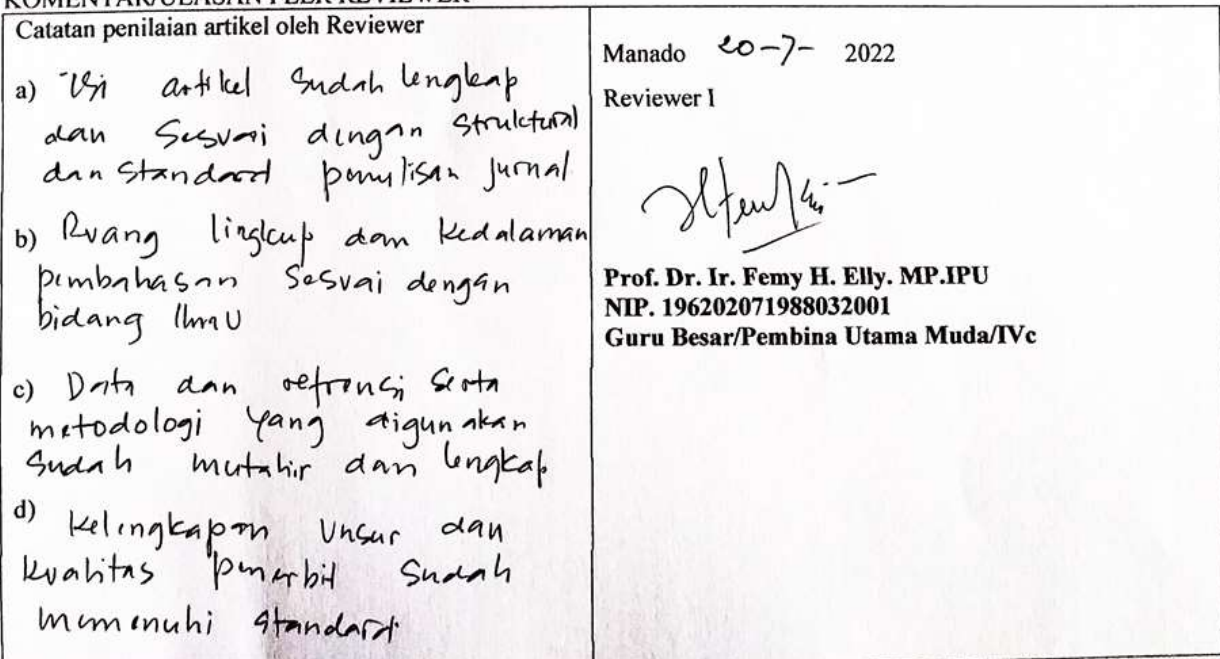 KOMENTAR/ULASAN PEER REVIEWER
Catatan penilaian artikel oleh Reviewer
a) Isi artikel sudah lengkap
dan Sesuai dengan struktural
dan Standard penulisan jurnal
b) Ruang lingkup dan kedalaman
pembahasan Sesuai dengan
bidang Ilmu
c) Data dan refrensi Serta
metodologi yang digunakan
Sudah mutahir dan lengkap
d) Kelengkapan Unsur dan
Kualitas penerbit Sudah
memenuhi Standard
Manado 20-7- 2022
Reviewer I
Prof. Dr. Ir. Femy H. Elly. MP.IPU
NIP. 196202071988032001
Guru Besar/Pembina Utama Muda/IVc